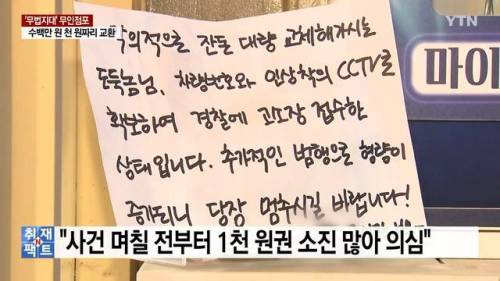 '무법지대' 무인점포
수백만 원 천 원짜리 교환
YTN
악의적으로 잔돈 대량 교체해가시는
도둑놈님, 차량번호와 인상착의 CCTV로
확보하여 경찰에 고소장 접수한
상태입니다. 추가적인 범행으로 형량이
증가되니 당장 멈추시길 바랍니다!
마이
취재N팩트
"사건 며칠 전부터 1천 원권 소진 많아 의심"